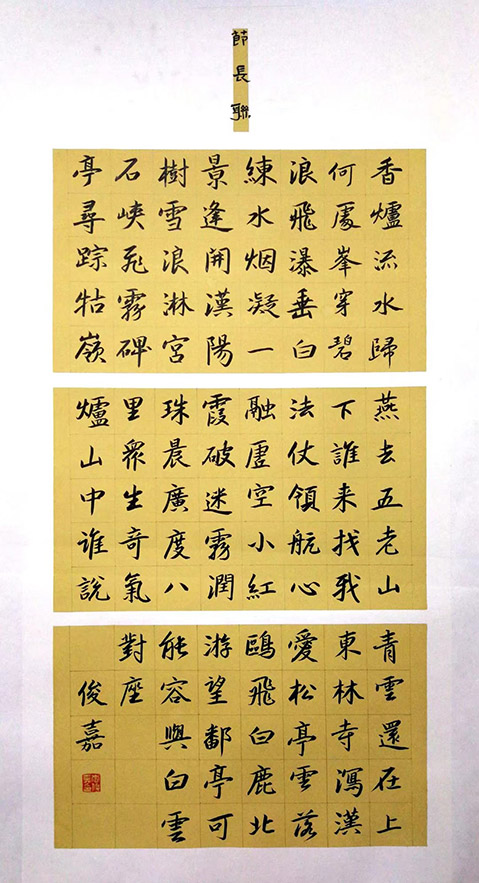 節長聯
香爐流水歸
何處峯穿碧
浪飛瀑垂白
練水烟凝一
景逢開漢陽
樹雪浪淋宮
石峽飛霧碑
亭尋踪牯嶺
燕去五老山
下誰来找我
法仗領航心
融虛空小紅
霞破迷霧潤
珠晨廣度八
里眾生奇氣
爐山中谁說
青雲還在上
東林寺瀉漢
愛松亭雲落
鷗飛白鹿北
游望鄱亭可
能容與白雲
對座
俊嘉